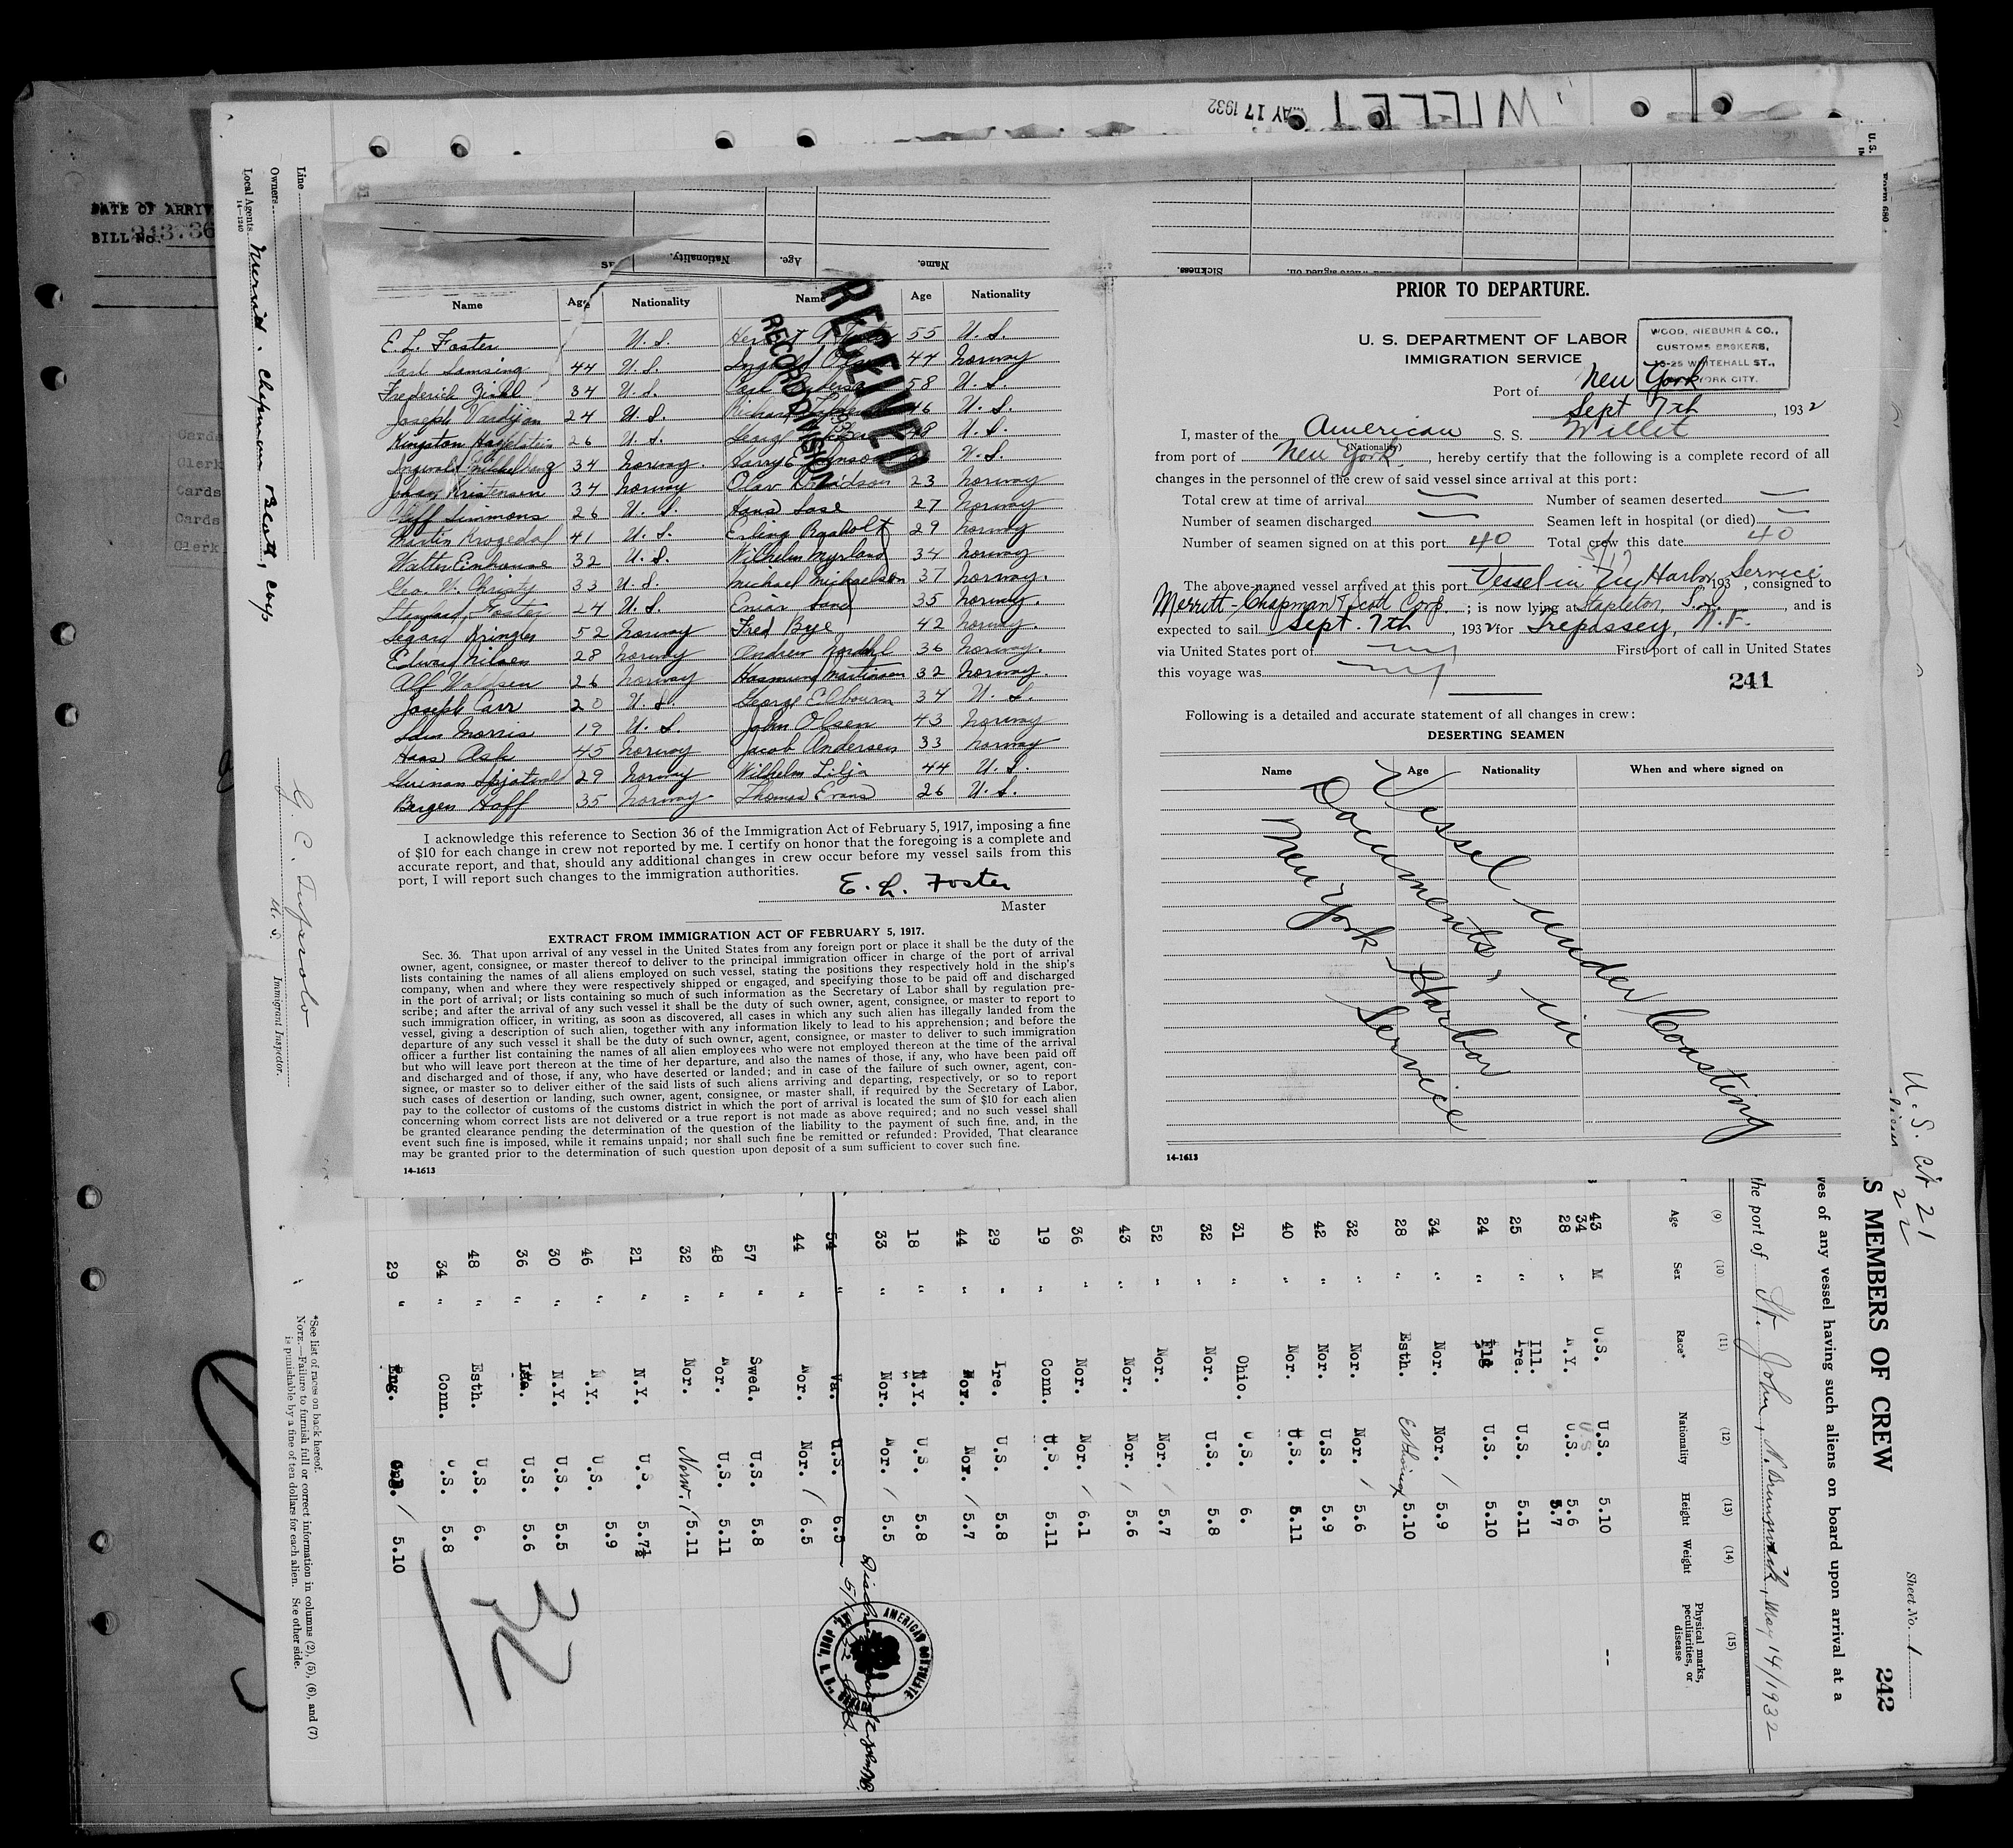 MAY 17 1932
WILLET
DATE OF ARRIV
BILL No.
Cards
Clerk
Cards
Cards
Clerk
Line
Owners
Local Agents
14-1240
G. C.
U. S. Immigrant Inspector.
Name Age Nationality
Sickness.
Form 680
Name Age Nationality Name Age Nationality
E. L. Foster U. S. 55 U. S.
Carl Samsing 44 U. S. 44 Norway
Frederick 34 U. S. Carl 58 U. S.
Joseph 24 U. S. Richard 46 U. S.
Kingston Hazelstein 26 U. S. George 48 U. S.
Ingvald 34 Norway. Harry E. U. S.
Johan Kristensen 34 Norway Olav Davidson 23 Norway
Simmons 26 U. S. Hans 27 Norway
Martin Krogedal 41 U. S. Erling 29 Norway
Walter Einhouse 32 U. S. Wilhelm Myrland 34 Norway
Geo. W. Christy 33 U. S. Michael Michaelsen 37 Norway.
24 U. S. Enias Sand 35 Norway.
Kringles 52 Norway Fred Bye 42 Norway.
Nilsen 28 Norway Andrew 36 Norway.
Alf 26 Norway Rasmund Martinsen 32 Norway.
Joseph Carr 20 U. S. George Elbourn 34 U. S.
Morris 19 U. S. John Olsen 43 Norway
Hans Ask 45 Norway Jacob Andersen 33 Norway
29 Norway Wilhelm Lilja 44 U. S.
Bergen Hoff 35 Norway. Thomas Evans 26 U. S.
RECEIVED
RECORD DIVISION
I acknowledge this reference to Section 36 of the Immigration Act of February 5, 1917, imposing a fine
of $10 for each change in crew not reported by me. I certify on honor that the foregoing is a complete and
accurate report, and that, should any additional changes in crew occur before my vessel sails from this
port, I will report such changes to the immigration authorities.
E. L. Foster
Master
EXTRACT FROM IMMIGRATION ACT OF FEBRUARY 5, 1917.
Sec. 36. That upon arrival of any vessel in the United States from any foreign port or place it shall be the duty of the
owner, agent, consignee, or master thereof to deliver to the principal immigration officer in charge of the port of arrival
lists containing the names of all aliens employed on such vessel, stating the positions they respectively hold in the ship's
company, when and where they were respectively shipped or engaged, and specifying those to be paid off and discharged
in the port of arrival; or lists containing so much of such information as the Secretary of Labor shall by regulation pre-
scribe; and after the arrival of any such vessel it shall be the duty of such owner, agent, consignee, or master to report to
such immigration officer, in writing, as soon as discovered, all cases in which any such alien has illegally landed from the
vessel, giving a description of such alien, together with any information likely to lead to his apprehension; and before the
departure of any such vessel it shall be the duty of such owner, agent, consignee, or master to deliver to such immigration
officer a further list containing the names of all alien employees who were not employed thereon at the time of the arrival
but who will leave port thereon at the time of her departure, and also the names of those, if any, who have been paid off
and discharged and of those, if any, who have deserted or landed; and in case of the failure of such owner, agent, con-
signee, or master so to deliver either of the said lists of such aliens arriving and departing, respectively, or so to report
such cases of desertion or landing, such owner, agent, consignee, or master shall, if required by the Secretary of Labor,
pay to the collector of customs of the customs district in which the port of arrival is located the sum of $10 for each alien
concerning whom correct lists are not delivered or a true report is not made as above required; and no such vessel shall
be granted clearance pending the determination of the question of the liability to the payment of such fine, and, in the
event such fine is imposed, while it remains unpaid; nor shall such fine be remitted or refunded: Provided, That clearance
may be granted prior to the determination of such question upon deposit of a sum sufficient to cover such fine.
14-1613
PRIOR TO DEPARTURE.
U. S. DEPARTMENT OF LABOR
IMMIGRATION SERVICE
WOOD, NIEBUHR & CO.,
CUSTOMS BROKERS,
WHITEHALL ST.,
YORK CITY.
Port of New York
Sept 7th, 1932
I, master of the American S. S. Willet
(Nationality)
from port of New York, hereby certify that the following is a complete record of all
changes in the personnel of the crew of said vessel since arrival at this port:
Total crew at time of arrival Number of seamen deserted
Number of seamen discharged Seamen left in hospital (or died)
Number of seamen signed on at this port 40 Total crew this date 40
The above-named vessel arrived at this port Vessel in Harbor Service 193 , consigned to
Merritt-Chapman & Scott Corp. ; is now lying at Stapleton, S. I., and is
expected to sail Sept. 7th, 1932 for Trepassey, N. F.
via United States port of First port of call in United States
this voyage was
241
Following is a detailed and accurate statement of all changes in crew:
DESERTING SEAMEN
Name Age Nationality When and where signed on
Vessel under Coasting
Documents, in
New York Harbor
Service
14-1613
U. S. cit 21
22
Sheet No. 1
242
S MEMBERS OF CREW
ves of any vessel having such aliens on board upon arrival at a
the port of St. John, N. Brunswick, May 14/1932
(9) (10) (11) (12) (13) (14) (15)
Age Sex Race* Nationality Height Weight Physical marks, peculiarities, or disease
43 M U.S. U.S. 5.10 --
34 U.S. 5.6
28 " N.Y. U.S. 5.7
25 " Ill. Ire. U.S. 5.11
24 " U.S. 5.10
34 " Nor. Nor. / 5.9
28 " Esth. 5.10
32 " Nor. Nor. / 5.6
42 " Nor. U.S. 5.9
40 " Nor. U.S. 5.11
31 " Ohio. U.S. 6.
32 " Nor. U.S. 5.8
52 " Nor. Nor. / 5.7
43 " Nor. Nor. / 5.6
36 " Nor. Nor. / 6.1
19 " Conn. U.S. 5.11
29 " Ire. U.S. 5.8
44 " Nor. Nor. / 5.7
18 " N.Y. U.S. 5.8
33 " Nor. Nor. / 5.5
54 " Va. U.S. 6.5
44 " Nor. Nor. / 6.5
57 " Swed. U.S. 5.8
48 " Nor. U.S. 5.11
32 " Nor. Norw. / 5.11
21 " N.Y. U.S. 5.7½
46 " N.Y. U.S. 5.9
30 " N.Y. U.S. 5.5
36 " U.S. 5.6
48 " Esth. U.S. 6.
34 " Conn. U.S. 5.8
29 " Eng. / 5.10
AMERICAN CONSULATE
32
*See list of races on back hereof.
NOTE.—Failure to furnish full or correct information in columns (2), (5), (6), and (7)
is punishable by a fine of ten dollars for each alien. See other side.